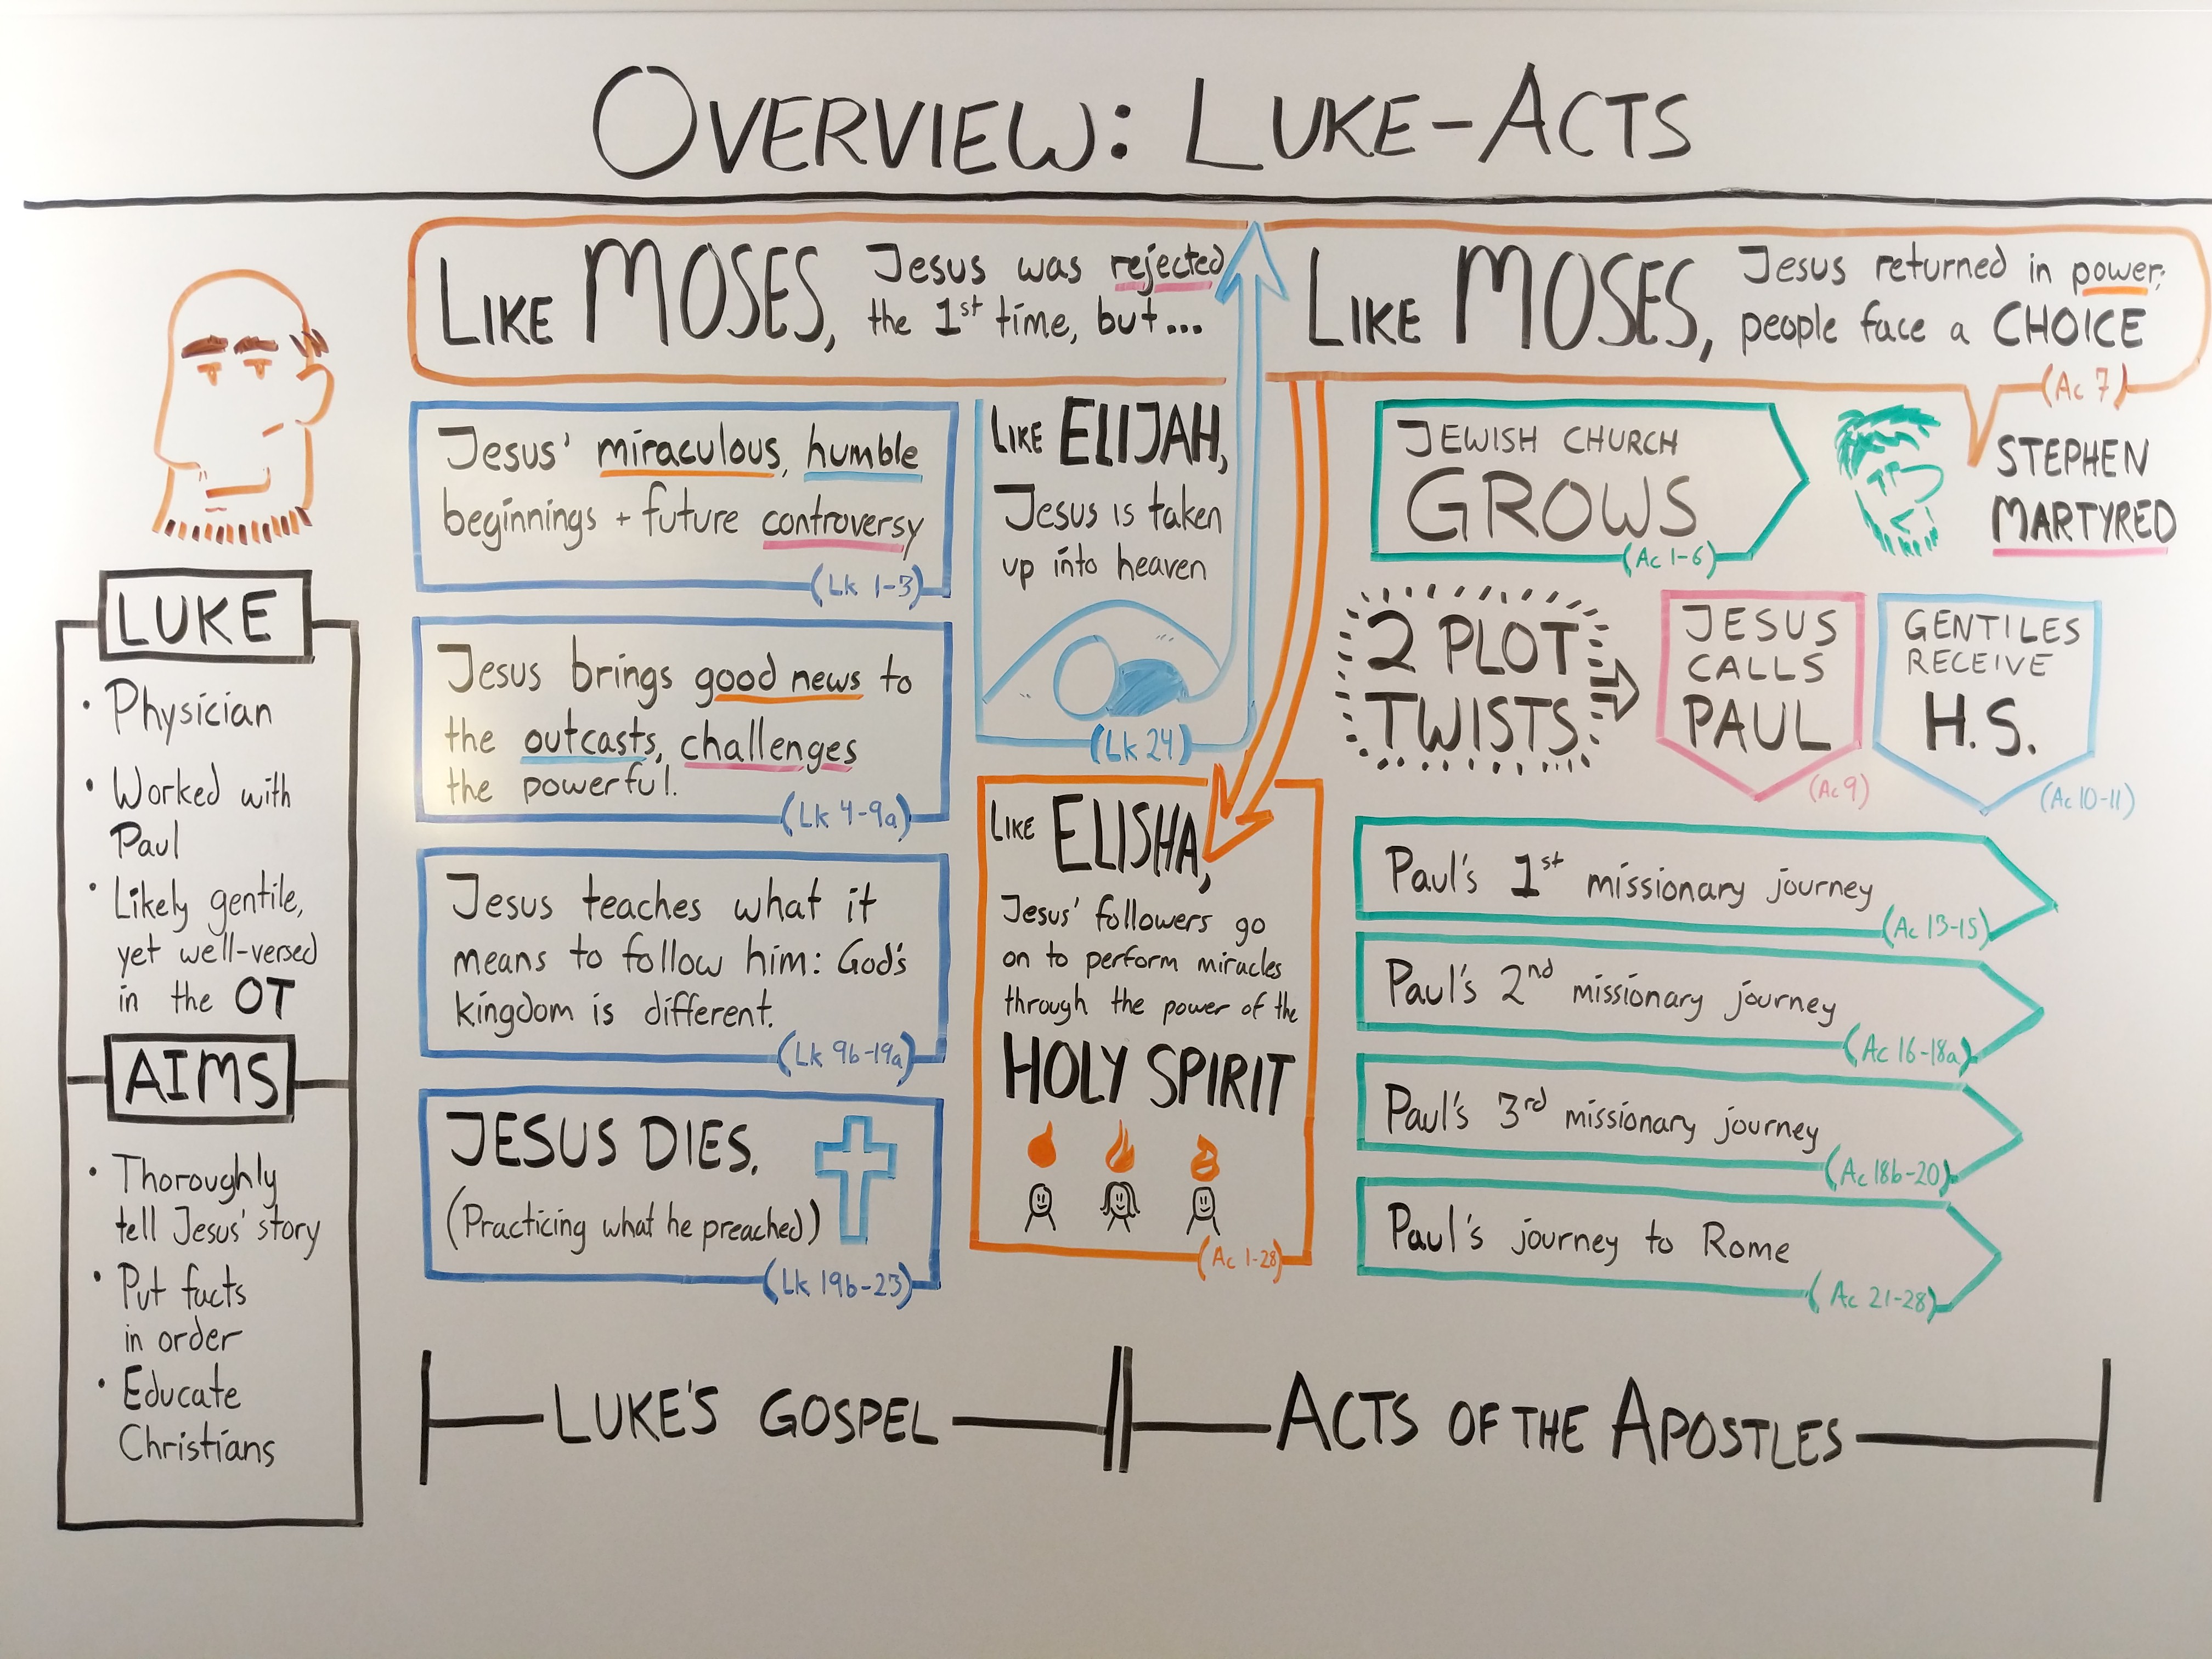 OVERVIEW: LUKE-ACTS
LIKE MOSES, Jesus was rejected
the 1st time, but...
LIKE MOSES, Jesus returned in power;
people face a CHOICE
(Ac 7)
LUKE
• Physician
• Worked with
Paul
• Likely gentile,
yet well-versed
in the OT
AIMS
• Thoroughly
tell Jesus' story
• Put facts
in order
• Educate
Christians
Jesus' miraculous, humble
beginnings + future controversy
(Lk 1-3)
Jesus brings good news to
the outcasts, challenges
the powerful.
(Lk 4-9a)
Jesus teaches what it
means to follow him: God's
kingdom is different.
(Lk 9b-19a)
JESUS DIES.
(Practicing what he preached)
(Lk 19b-23)
LIKE ELIJAH,
Jesus is taken
up into heaven
(Lk 24)
LIKE ELISHA,
Jesus' followers go
on to perform miracles
through the power of the
HOLY SPIRIT
(Ac 1-28)
JEWISH CHURCH
GROWS
(Ac 1-6)
STEPHEN
MARTYRED
2 PLOT
TWISTS
JESUS
CALLS
PAUL
(Ac 9)
GENTILES
RECEIVE
H.S.
(Ac 10-11)
Paul's 1st missionary journey
(Ac 13-15)
Paul's 2nd missionary journey
(Ac 16-18a)
Paul's 3rd missionary journey
(Ac 18b-20)
Paul's journey to Rome
(Ac 21-28)
LUKE'S GOSPEL
ACTS OF THE APOSTLES